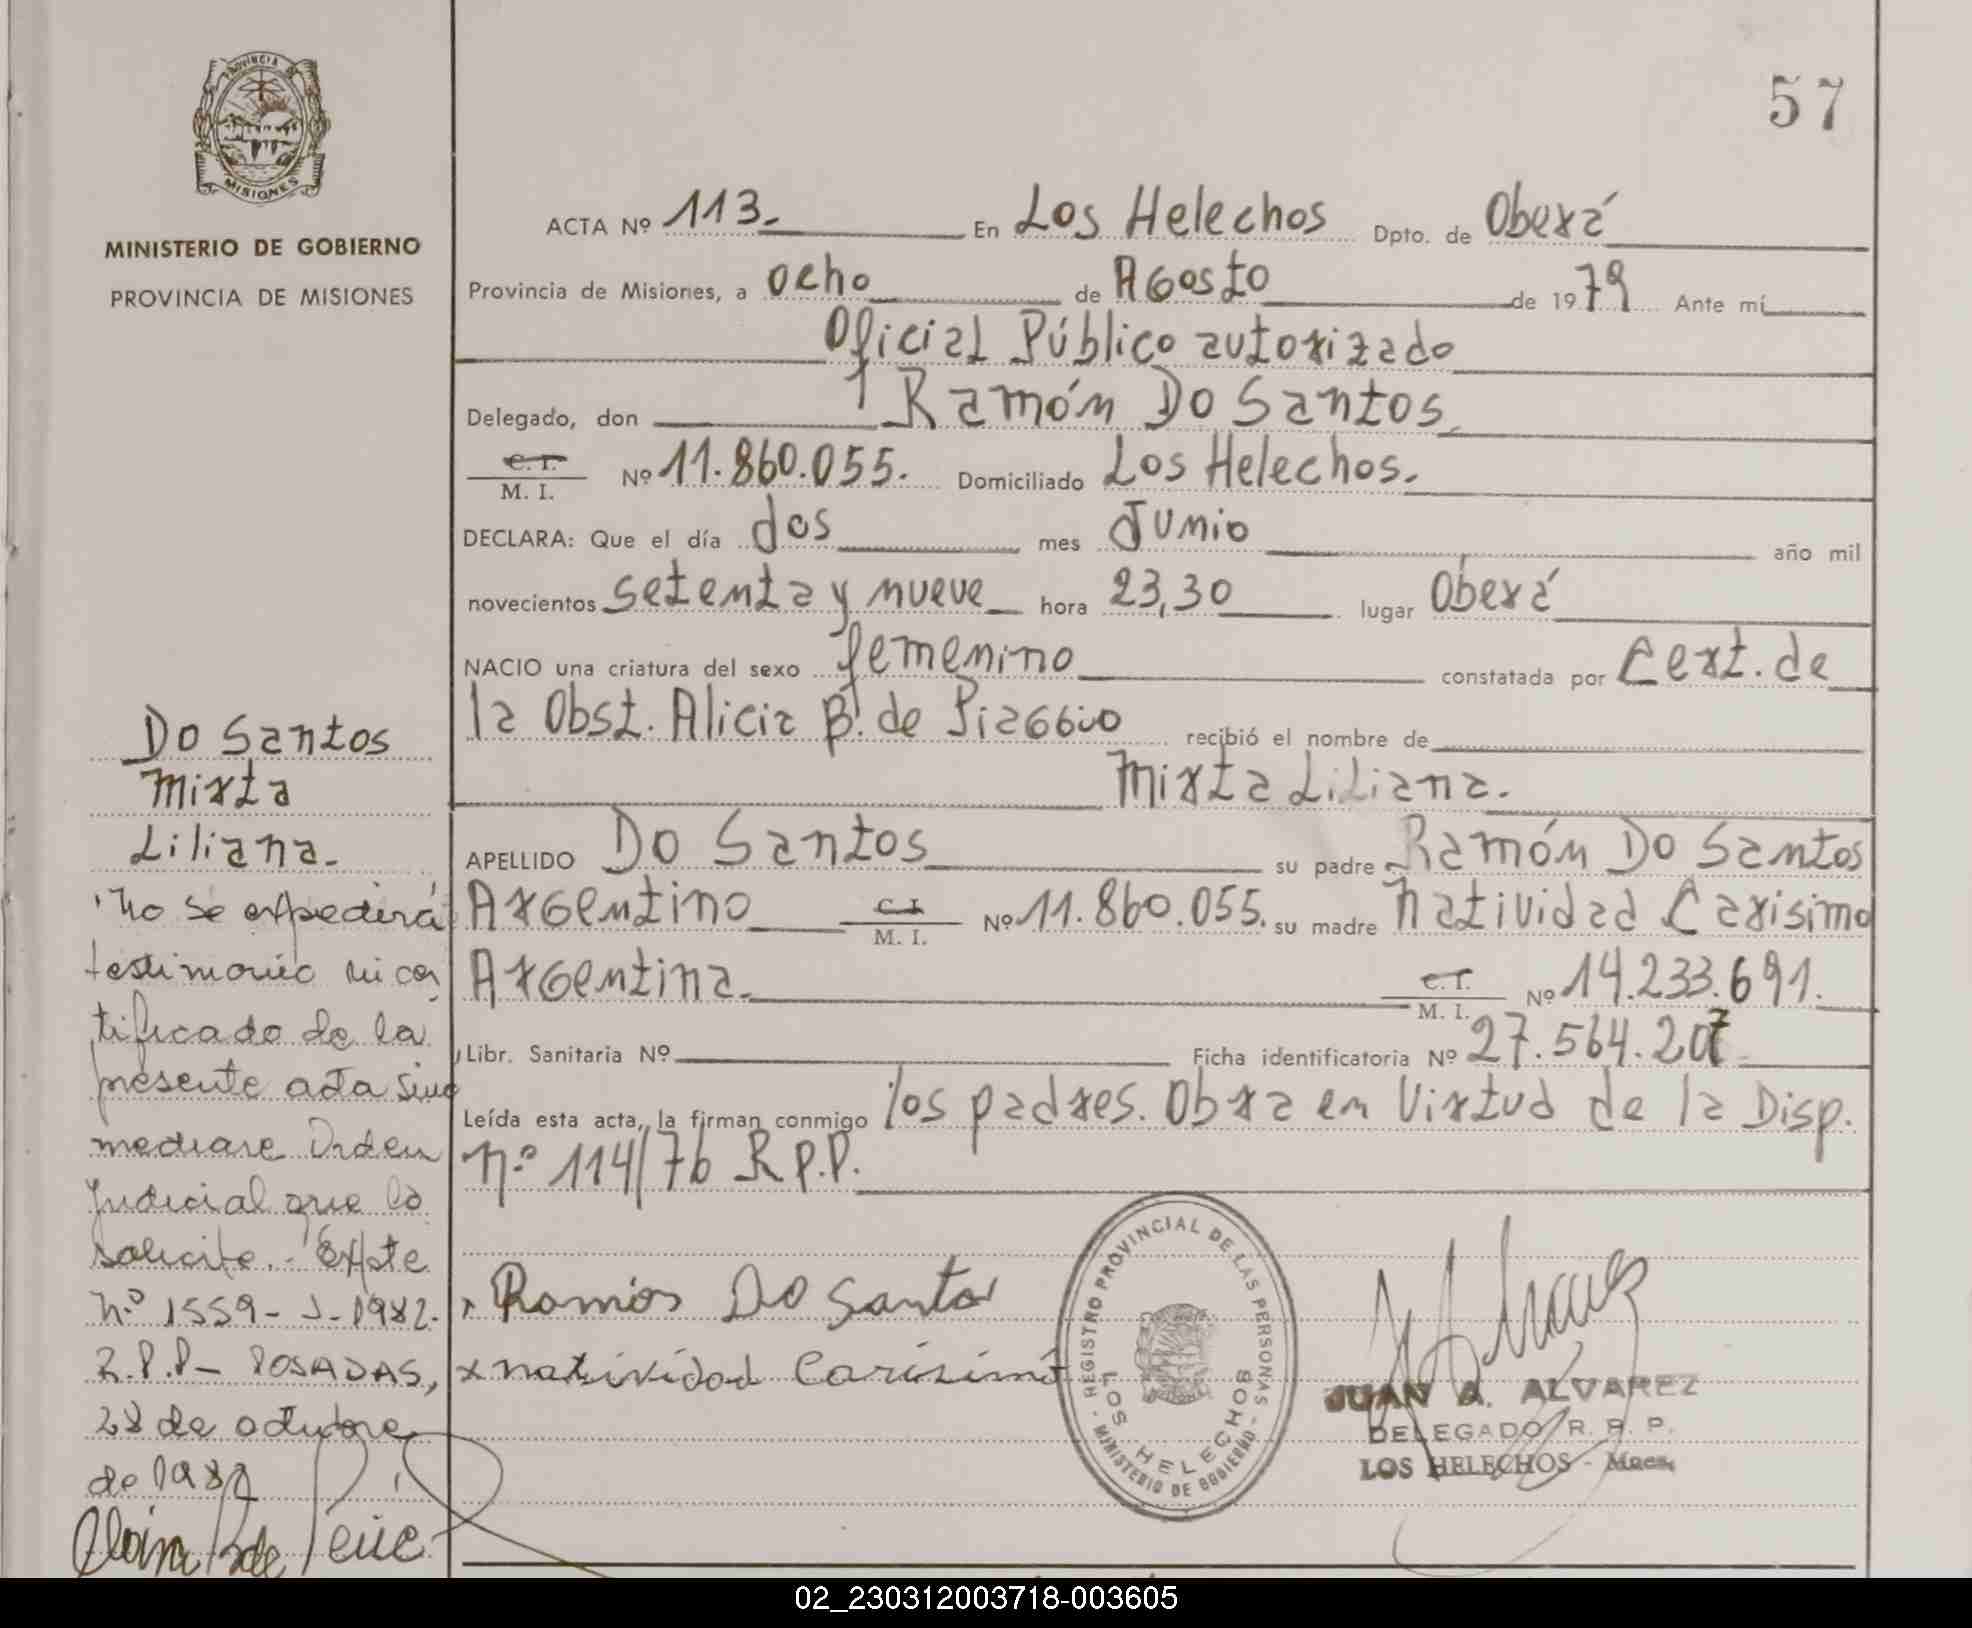 57
PROVINCIA DE
MISIONES
MINISTERIO DE GOBIERNO
PROVINCIA DE MISIONES
ACTA Nº 113. En Los Helechos Dpto. de Oberá
Provincia de Misiones, a ocho de Agosto de 1979 Ante mí
Oficial Público autorizado
Delegado, don Ramón Do Santos
C. I. M. I. Nº 11.860.055. Domiciliado Los Helechos.
DECLARA: Que el día dos mes Junio año mil
novecientos setenta y nueve hora 23,30 lugar Oberá
NACIO una criatura del sexo femenino constatada por Cert. de
la Obst. Alicia B. de Piaggio recibió el nombre de
Mirta Liliana.
APELLIDO Do Santos su padre Ramón Do Santos
Argentino C.I. M. I. Nº 11.860.055. su madre Natividad Carisimo
Argentina. C.I. M. I. Nº 14.233.691.
Libr. Sanitaria Nº Ficha identificatoria Nº 27.564.207
Leída esta acta, la firman conmigo los padres. Obra en Virtud de la Disp.
Nº 114/76 R.P.P.
Do Santos
Mirta
Liliana.
No se expedirá
testimonio ni cer
tificado de la
presente acta sino
mediare Orden
Judicial que lo
solicite.- Expte
Nº 1559-J-1982.
R.P.P- POSADAS,
28 de octubre
de 1982
Ramón Do Santos
x natividad Carisimo
REGISTRO PROVINCIAL DE LAS PERSONAS
- MINISTERIO DE GOBIERNO -
LOS HELECHOS
JUAN A. ALVAREZ
DELEGADO R. P. P.
LOS HELECHOS - Mnes.
02_230312003718-003605